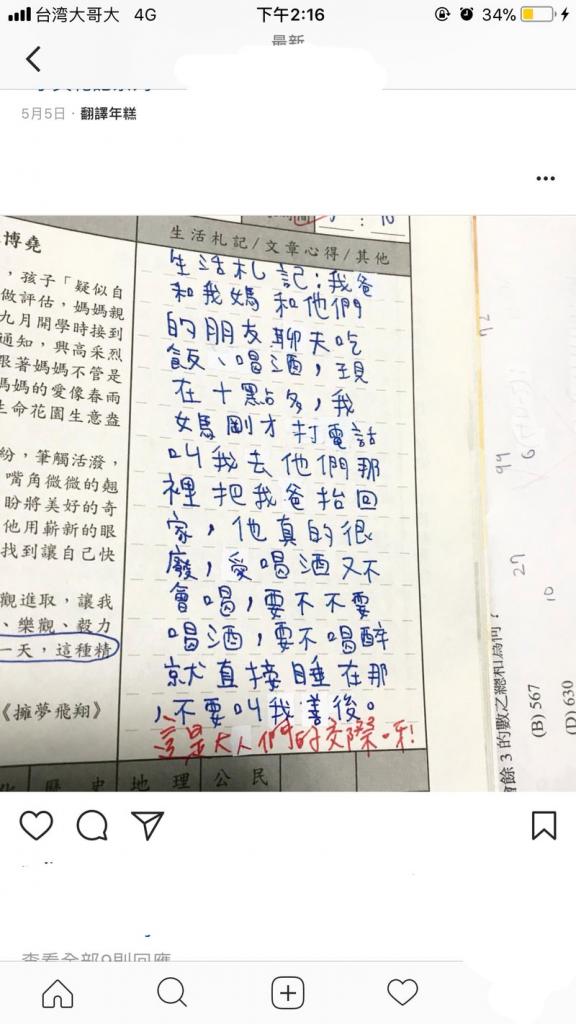 台湾大哥大 4G 下午2:16 34%
最新
5月5日 · 翻譯年糕
博堯
,孩子「疑似自
做評估,媽媽親
九月開學時接到
通知,興高采烈
跟著媽媽不管是
媽媽的愛像春雨
生命花園生意盎
紛,筆觸活潑,
嘴角微微的翹
盼將美好的奇
他用嶄新的眼
找到讓自己快
觀進取,讓我
、樂觀、毅力
一天,這種精
《擁夢飛翔》
生活札記/文章心得/其他
生活札記:我爸
和我媽和他們
的朋友聊天吃
飯、喝酒,現
在十點多,我
媽剛才打電話
叫我去他們那
裡把我爸抬回
家,他真的很
廢,愛喝酒又不
會喝,要不不要
喝酒,要不喝醉
就直接睡在那
,不要叫我善後。
這是大人們的交際呀!
歷史 地理 公民
99
27
10
會餘 3 的數之總和為何?
(B) 567
(D) 630
查看全部9則回應